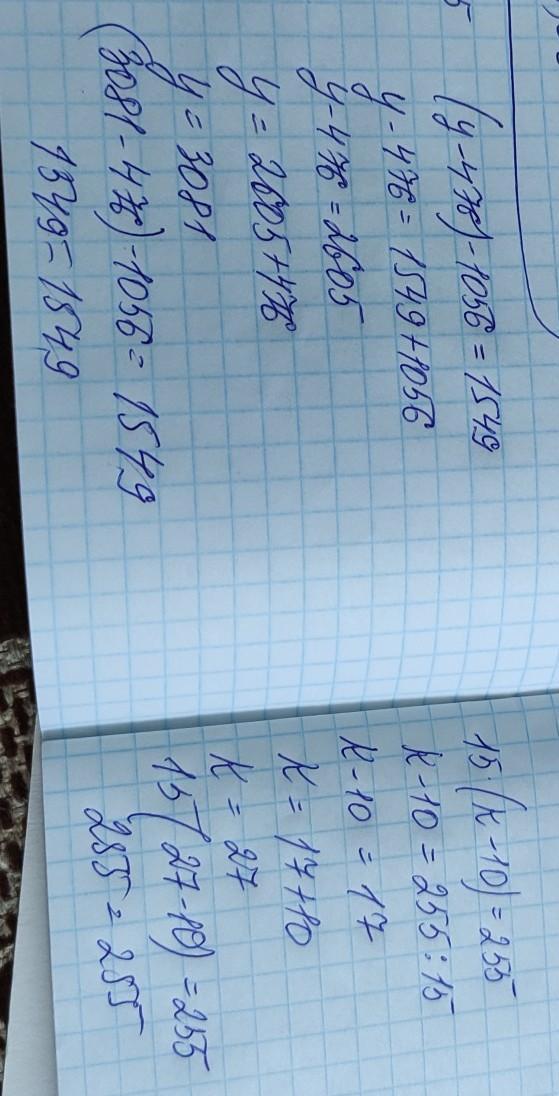 (y-476)-1056=1549
y-476=1549+1056
y-476=2605
y=2605+476
y=3081
(3081-476)-1056=1549
1549=1549
15·(k-10)=255
k-10=255:15
k-10=17
k=17+10
k=27
15(27-10)=255
255=255